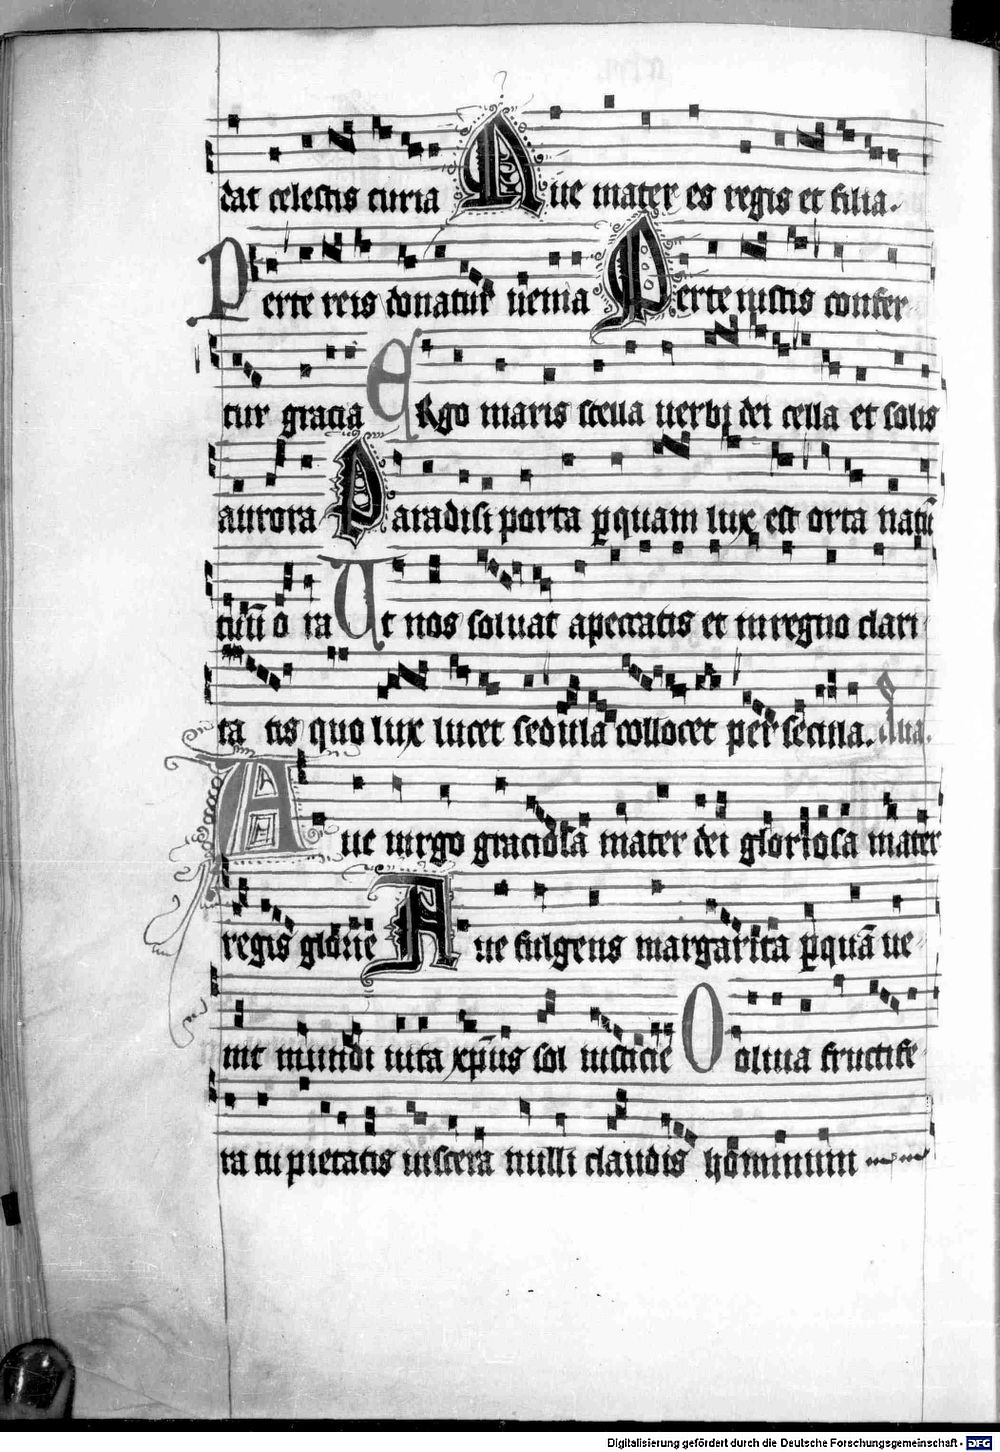 dat celestis curia Aue mater es regis et filia.
Per te reis donatur uenia Per te iustis confer
tur gracia ERgo maris stella uerbi dei cella et solis
aurora Paradisi porta p̱quam lux est orta natū
cuiū o ra Ut nos soluat apeccatis et inregno clari
ta tis quo lux lucet sedula collocet per secula. Aua.
Aue uirgo graciosa mater dei gloriosa mater
regis glorie Aue fulgens margarita p̱quā ue
nit mundi uita xp̄us sol iusticie O oliua fructife
ra tu pietatis uiscera nulli claudis hominum
Digitalisierung gefördert durch die Deutsche Forschungsgemeinschaft - DFG